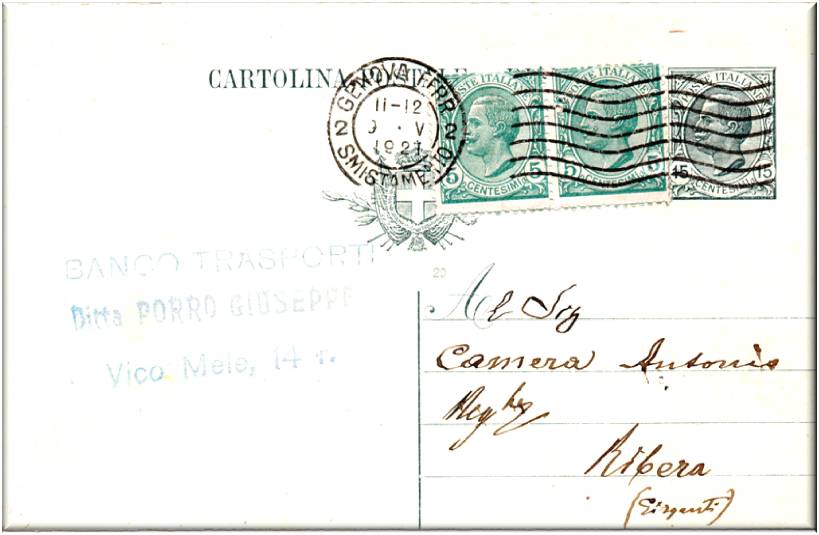 CARTOLINA
GENOVA FERR.
11-12
9 · V
1921
2 2
SMISTAMENTO
POSTE ITALIANE
5 CENTESIMI 5
5 CENTESIMI 5
15 CENTESIMI 15
BANCO TRASPORTI
Ditta PORRO GIUSEPPE
Vico Mele, 14 r.
20
Al Sig
Camera Antonio
Ribera
(Girgenti)